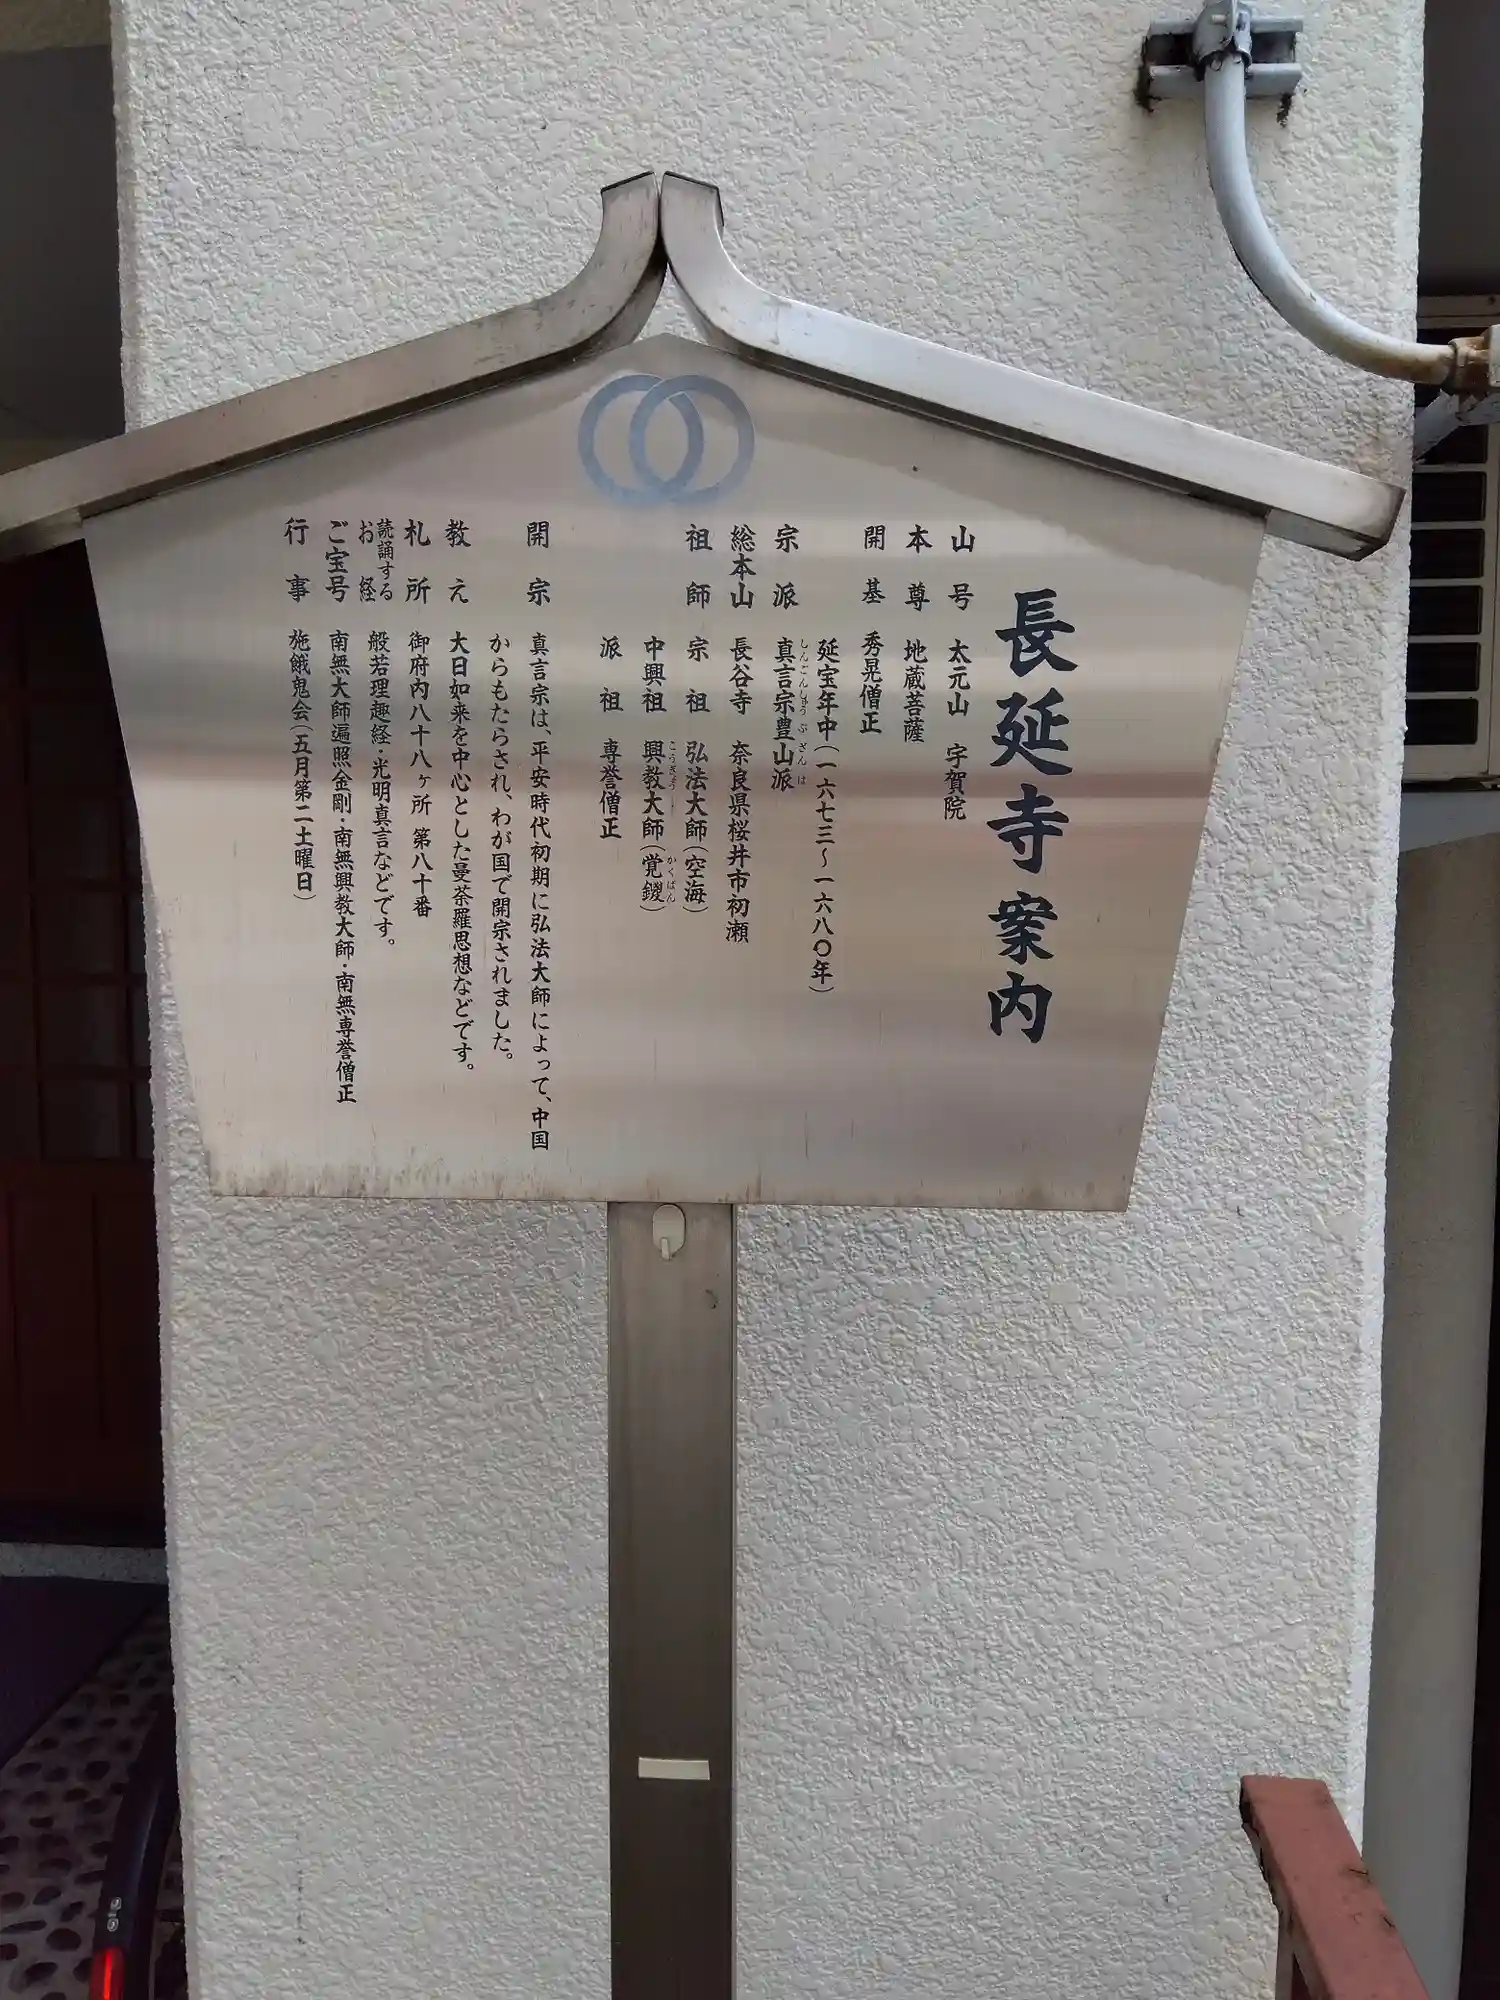 長延寺案内
山号 太元山 宇賀院
本尊 地蔵菩薩
開基 秀晃僧正
延宝年中(一六七三〜一六八〇年)
宗派 真言宗豊山派
しんごんしゅう ぶざんは
総本山 長谷寺 奈良県桜井市初瀬
祖師 宗祖 弘法大師(空海)
中興祖 興教大師(覚鑁)
こうぎょう かくばん
派祖 専誉僧正
開宗 真言宗は、平安時代初期に弘法大師によって、中国
からもたらされ、わが国で開宗されました。
教え 大日如来を中心とした曼荼羅思想などです。
札所 御府内八十八ヶ所 第八十番
読誦する
お経 般若理趣経・光明真言などです。
ご宝号 南無大師遍照金剛・南無興教大師・南無専誉僧正
行事 施餓鬼会(五月第二土曜日)